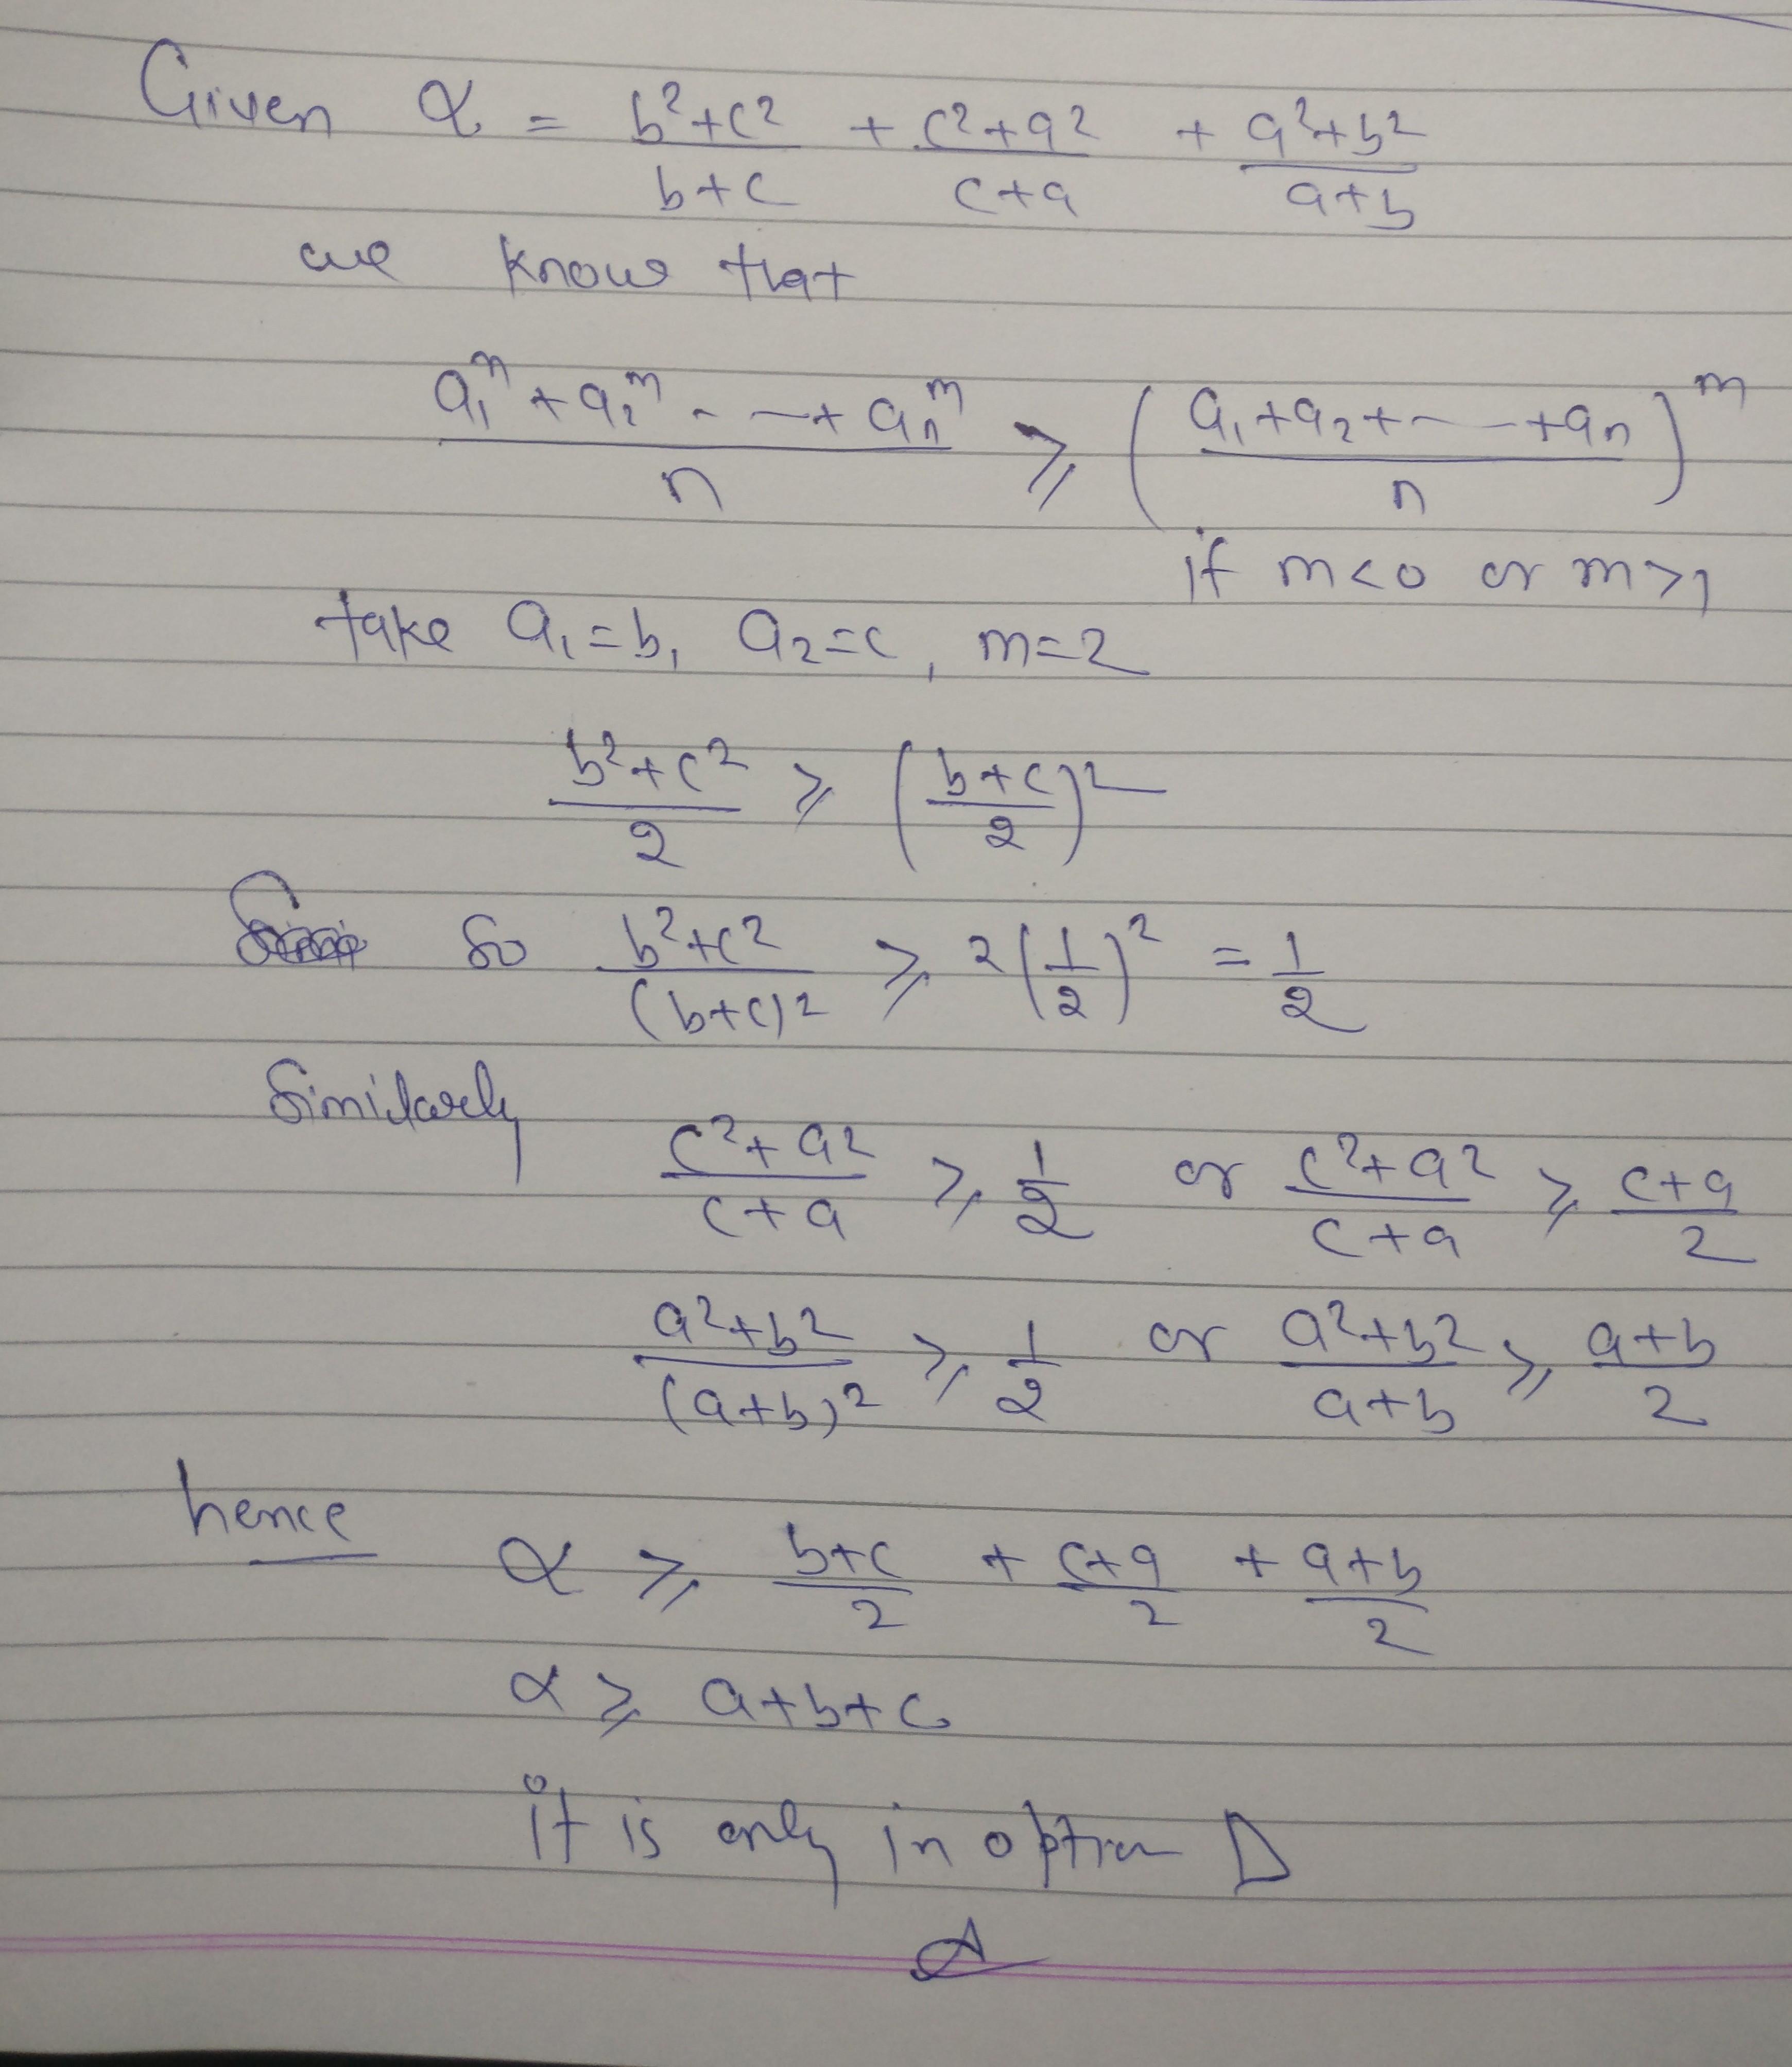 Given α = b²+c²/b+c + c²+a²/c+a + a²+b²/a+b
we know that
a₁ᵐ + a₂ᵐ - - - + aₙᵐ/n ⩾ (a₁+a₂+ - - - +aₙ/n)ᵐ
if m<0 or m>1
take a₁=b, a₂=c, m=2
b²+c²/2 ⩾ (b+c/2)²
So b²+c²/(b+c)² ⩾ 2(1/2)² = 1/2
Similarly c²+a²/c+a ⩾ 1/2 or c²+a²/c+a ⩾ c+a/2
a²+b²/(a+b)² ⩾ 1/2 or a²+b²/a+b ⩾ a+b/2
hence α ⩾ b+c/2 + c+a/2 + a+b/2
α ⩾ a+b+c
it is only in option D